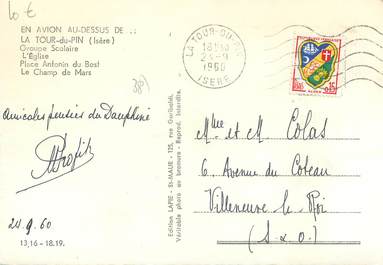 10 €
EN AVION AU-DESSUS DE . .
LA TOUR-du-PIN (Isère)
Groupe Scolaire
L'Église
Place Antonin du Bost
Le Champ de Mars
38
Amicales pensées du Dauphiné
24.9.60
13,16 - 18.19.
Edition LAPIE - St-MAUR - 125, rue Garibaldi.
Véritable photo au bromure - Reprod. Interdite.
LA TOUR-DU-PIN
ISERE
Mme et M Colas
6, Avenue du Coteau
Villeneuve le Roi
(S. & O.)